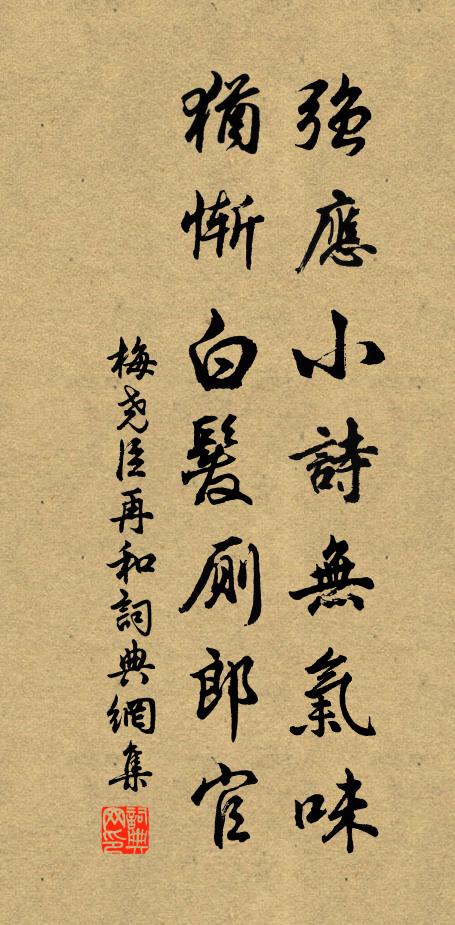 強應小詩無氣味
猶慚白髮廁郎官
梅堯臣再和詞典網集
詞典网印